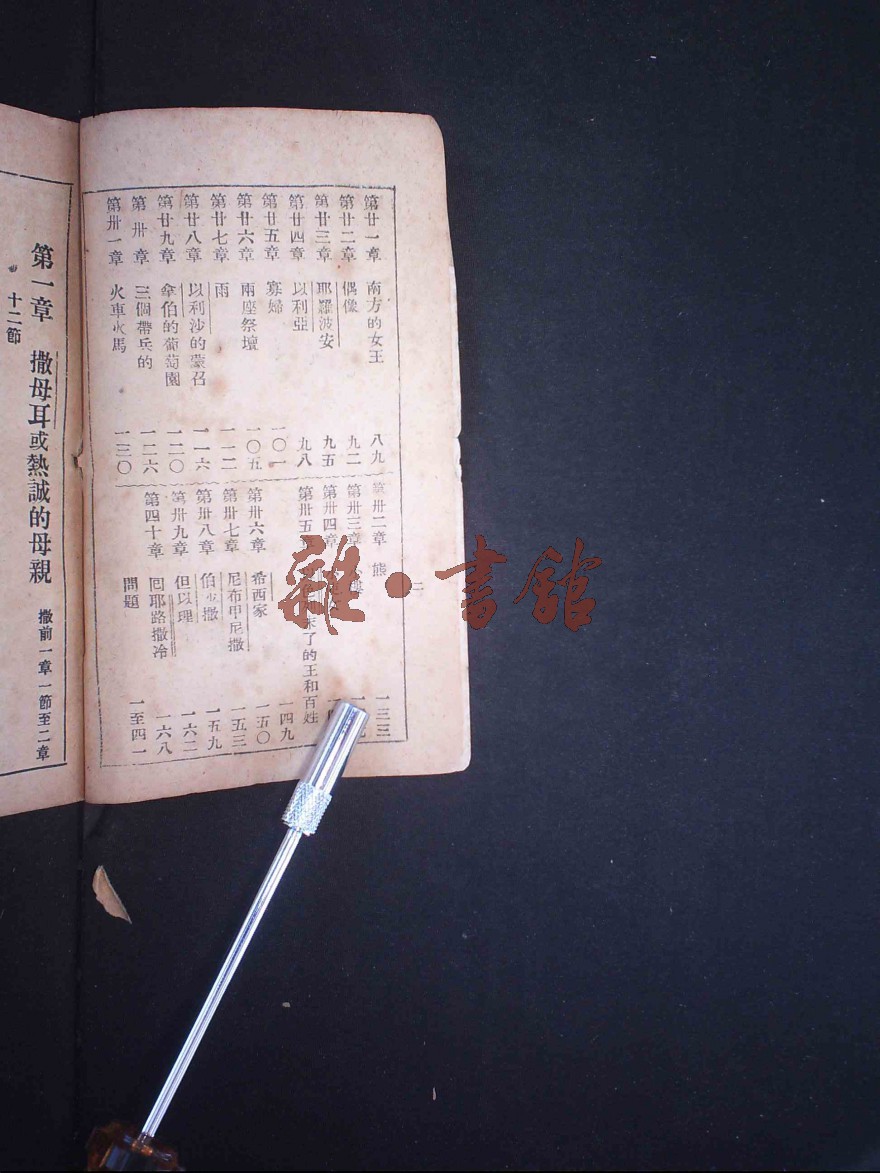 第廿一章 南方的女王 八九
第廿二章 偶像 九二
第廿三章 耶羅波安 九五
第廿四章 以利亞 九八
第廿五章 寡婦 一〇一
第廿六章 兩座祭壇 一〇五
第廿七章 雨 一一二
第廿八章 以利沙的蒙召 一一六
第廿九章 拿伯的葡萄園 一二〇
第卅章 三個帶兵的 一二六
第卅一章 火車火馬 一三〇
二
第卅二章 熊 一三三
第卅三章
第卅四章
第卅五章 末了的王和百姓 一四九
第卅六章 希西家 一五〇
第卅七章 尼布甲尼撒 一五三
第卅八章 伯沙撒 一五九
第卅九章 但以理 一六二
第四十章 回耶路撒冷 一六八
問題 一至四一
第一章 撒母耳或熱誠的母親 撒前一章一節至二章
十二節
雜·書館